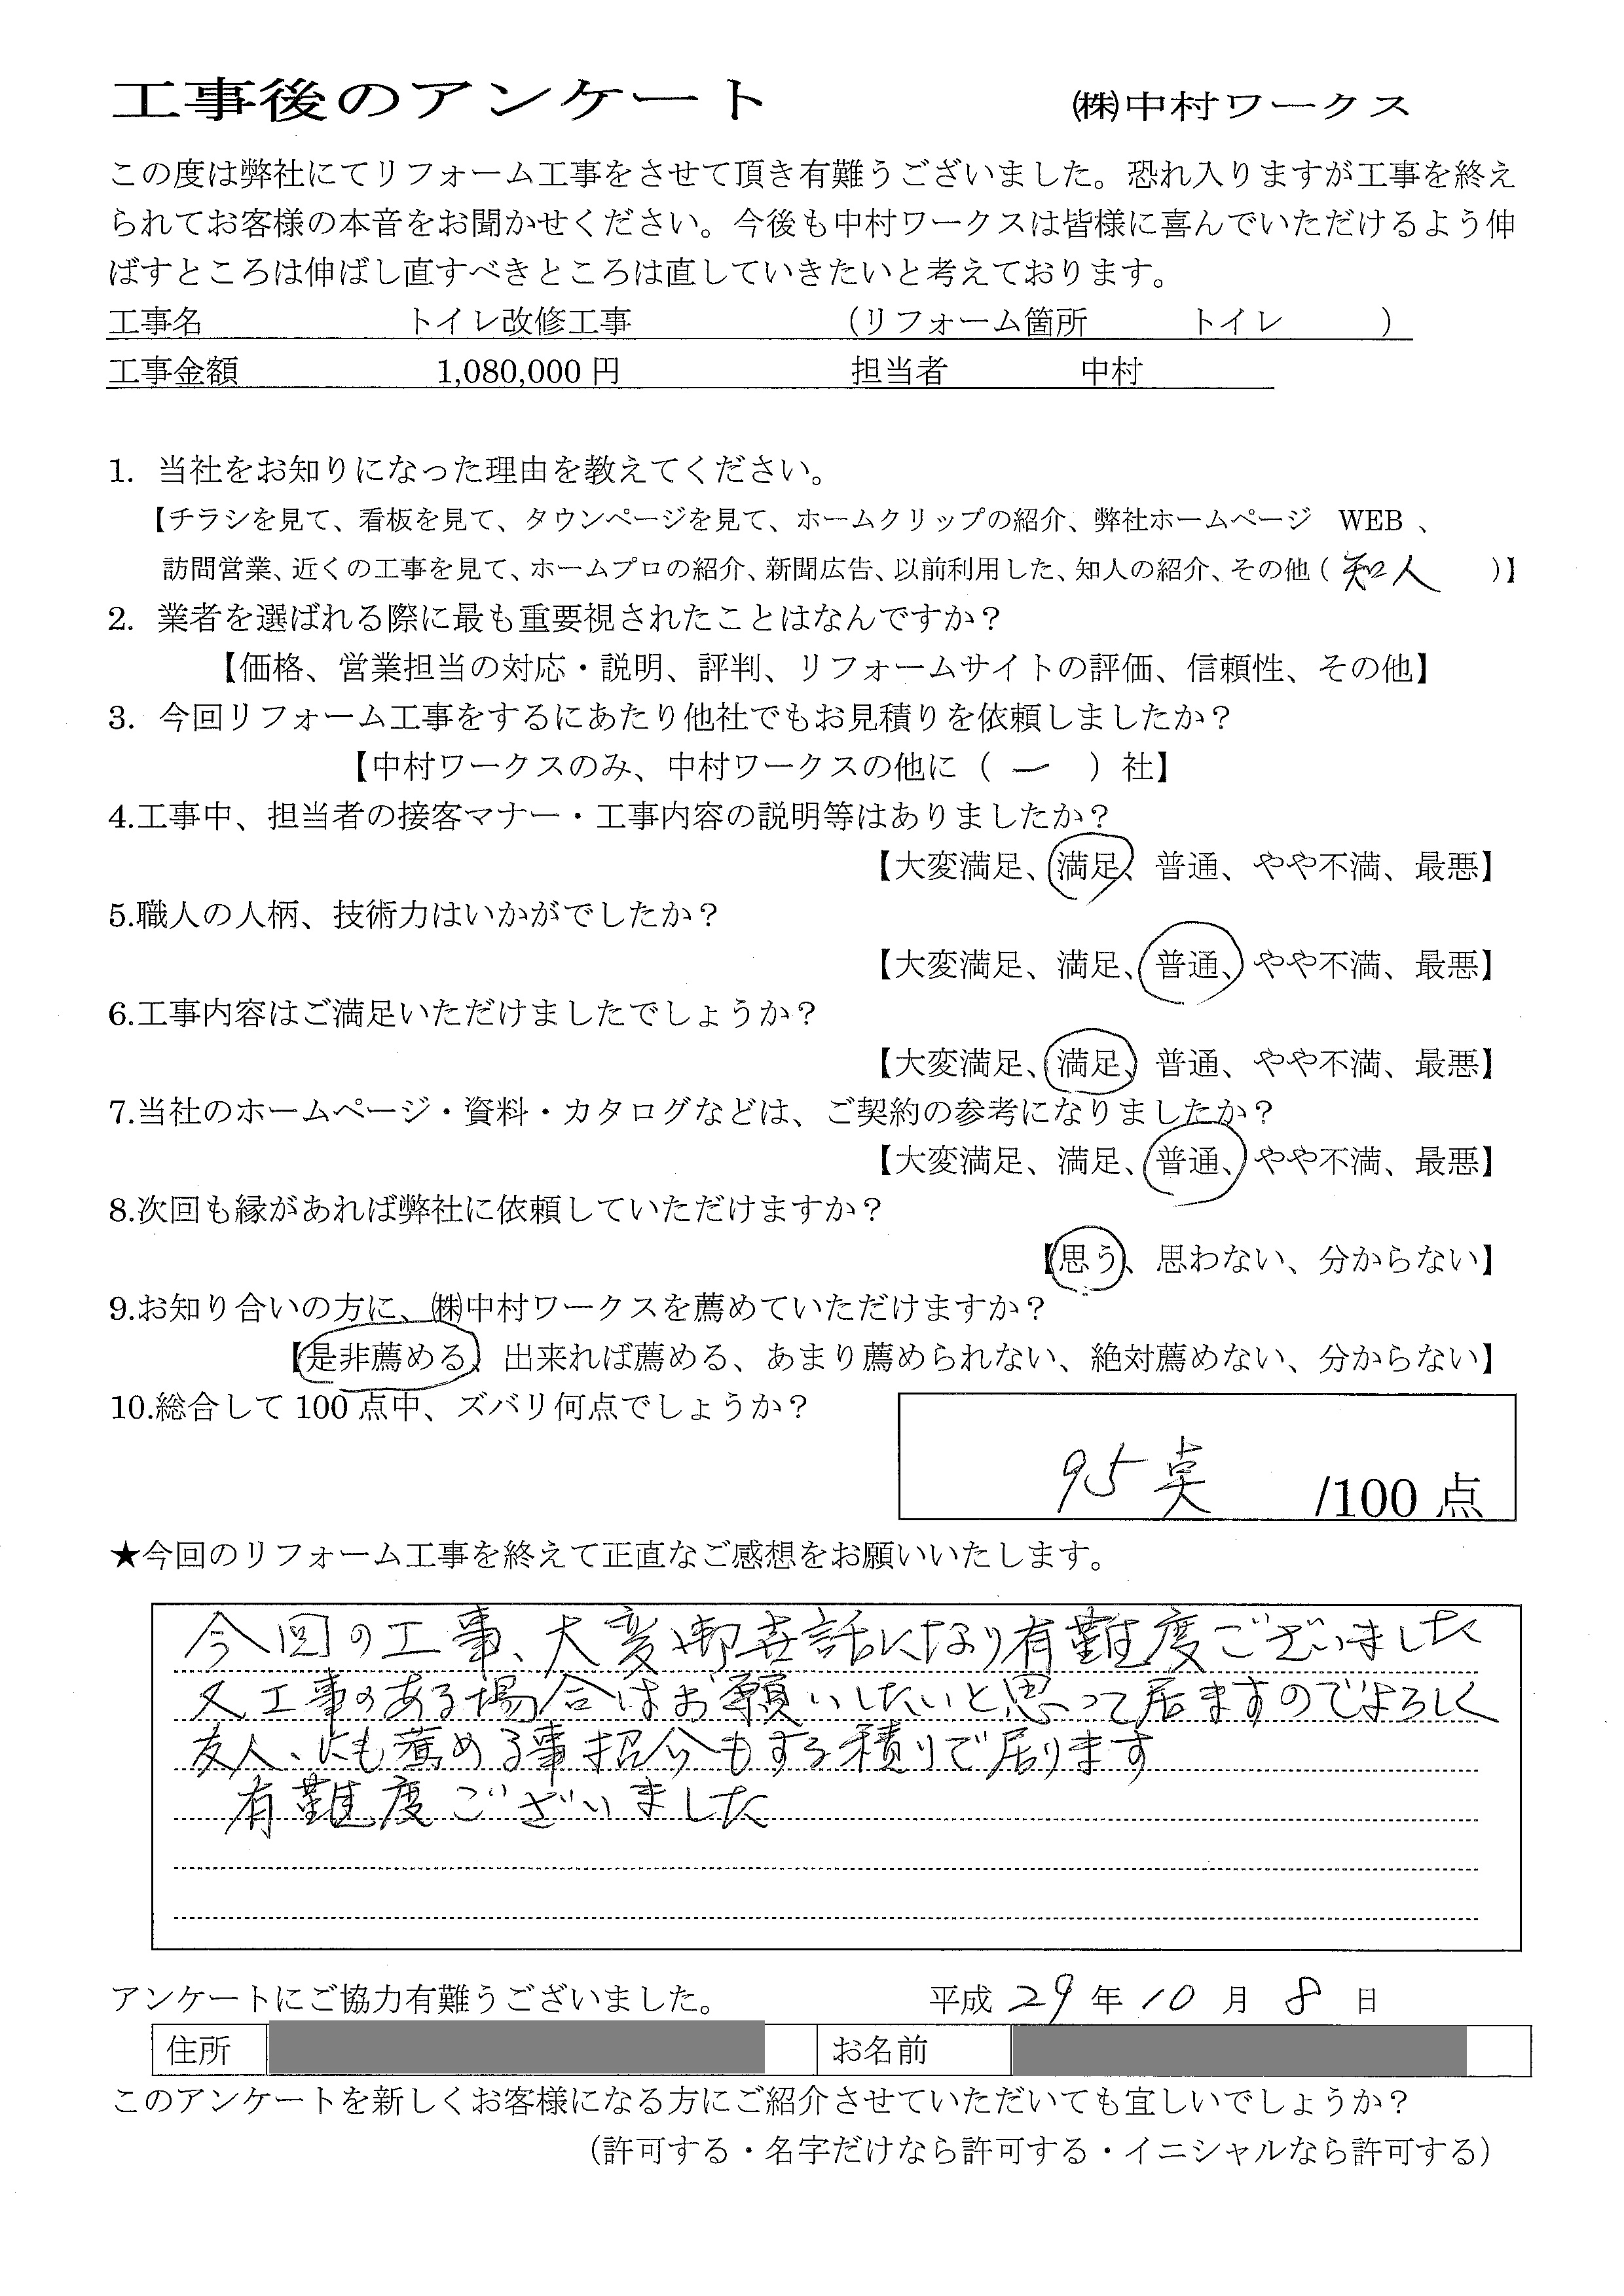 工事後のアンケート ㈱中村ワークス
この度は弊社にてリフォーム工事をさせて頂き有難うございました。恐れ入りますが工事を終え
られてお客様の本音をお聞かせください。今後も中村ワークスは皆様に喜んでいただけるよう伸
ばすところは伸ばし直すべきところは直していきたいと考えております。
工事名 トイレ改修工事 （リフォーム箇所 トイレ ）
工事金額 1,080,000 円 担当者 中村
1. 当社をお知りになった理由を教えてください。
【チラシを見て、看板を見て、タウンページを見て、ホームクリップの紹介、弊社ホームページ WEB 、
訪問営業、近くの工事を見て、ホームプロの紹介、新聞広告、以前利用した、知人の紹介、その他（ 知人 ）】
2. 業者を選ばれる際に最も重要視されたことはなんですか？
【価格、営業担当の対応・説明、評判、リフォームサイトの評価、信頼性、その他】
3. 今回リフォーム工事をするにあたり他社でもお見積りを依頼しましたか？
【中村ワークスのみ、中村ワークスの他に（ 一 ）社】
4.工事中、担当者の接客マナー・工事内容の説明等はありましたか？
【大変満足、満足、普通、やや不満、最悪】
5.職人の人柄、技術力はいかがでしたか？
【大変満足、満足、普通、やや不満、最悪】
6.工事内容はご満足いただけましたでしょうか？
【大変満足、満足、普通、やや不満、最悪】
7.当社のホームページ・資料・カタログなどは、ご契約の参考になりましたか？
【大変満足、満足、普通、やや不満、最悪】
8.次回も縁があれば弊社に依頼していただけますか？
【思う、思わない、分からない】
9.お知り合いの方に、㈱中村ワークスを薦めていただけますか？
【是非薦める、出来れば薦める、あまり薦められない、絶対薦めない、分からない】
10.総合して 100 点中、ズバリ何点でしょうか？
95点 /100 点
★今回のリフォーム工事を終えて正直なご感想をお願いいたします。
今回の工事、大変御世話になり有難度ございました
又工事のある場合はお願いしたいと思って居ますのでよろしく
友人、にも薦める事紹介もする積りで居ります
有難度ございました
アンケートにご協力有難うございました。 平成 29 年 10 月 8 日
住所 お名前
このアンケートを新しくお客様になる方にご紹介させていただいても宜しいでしょうか？
（許可する・名字だけなら許可する・イニシャルなら許可する）